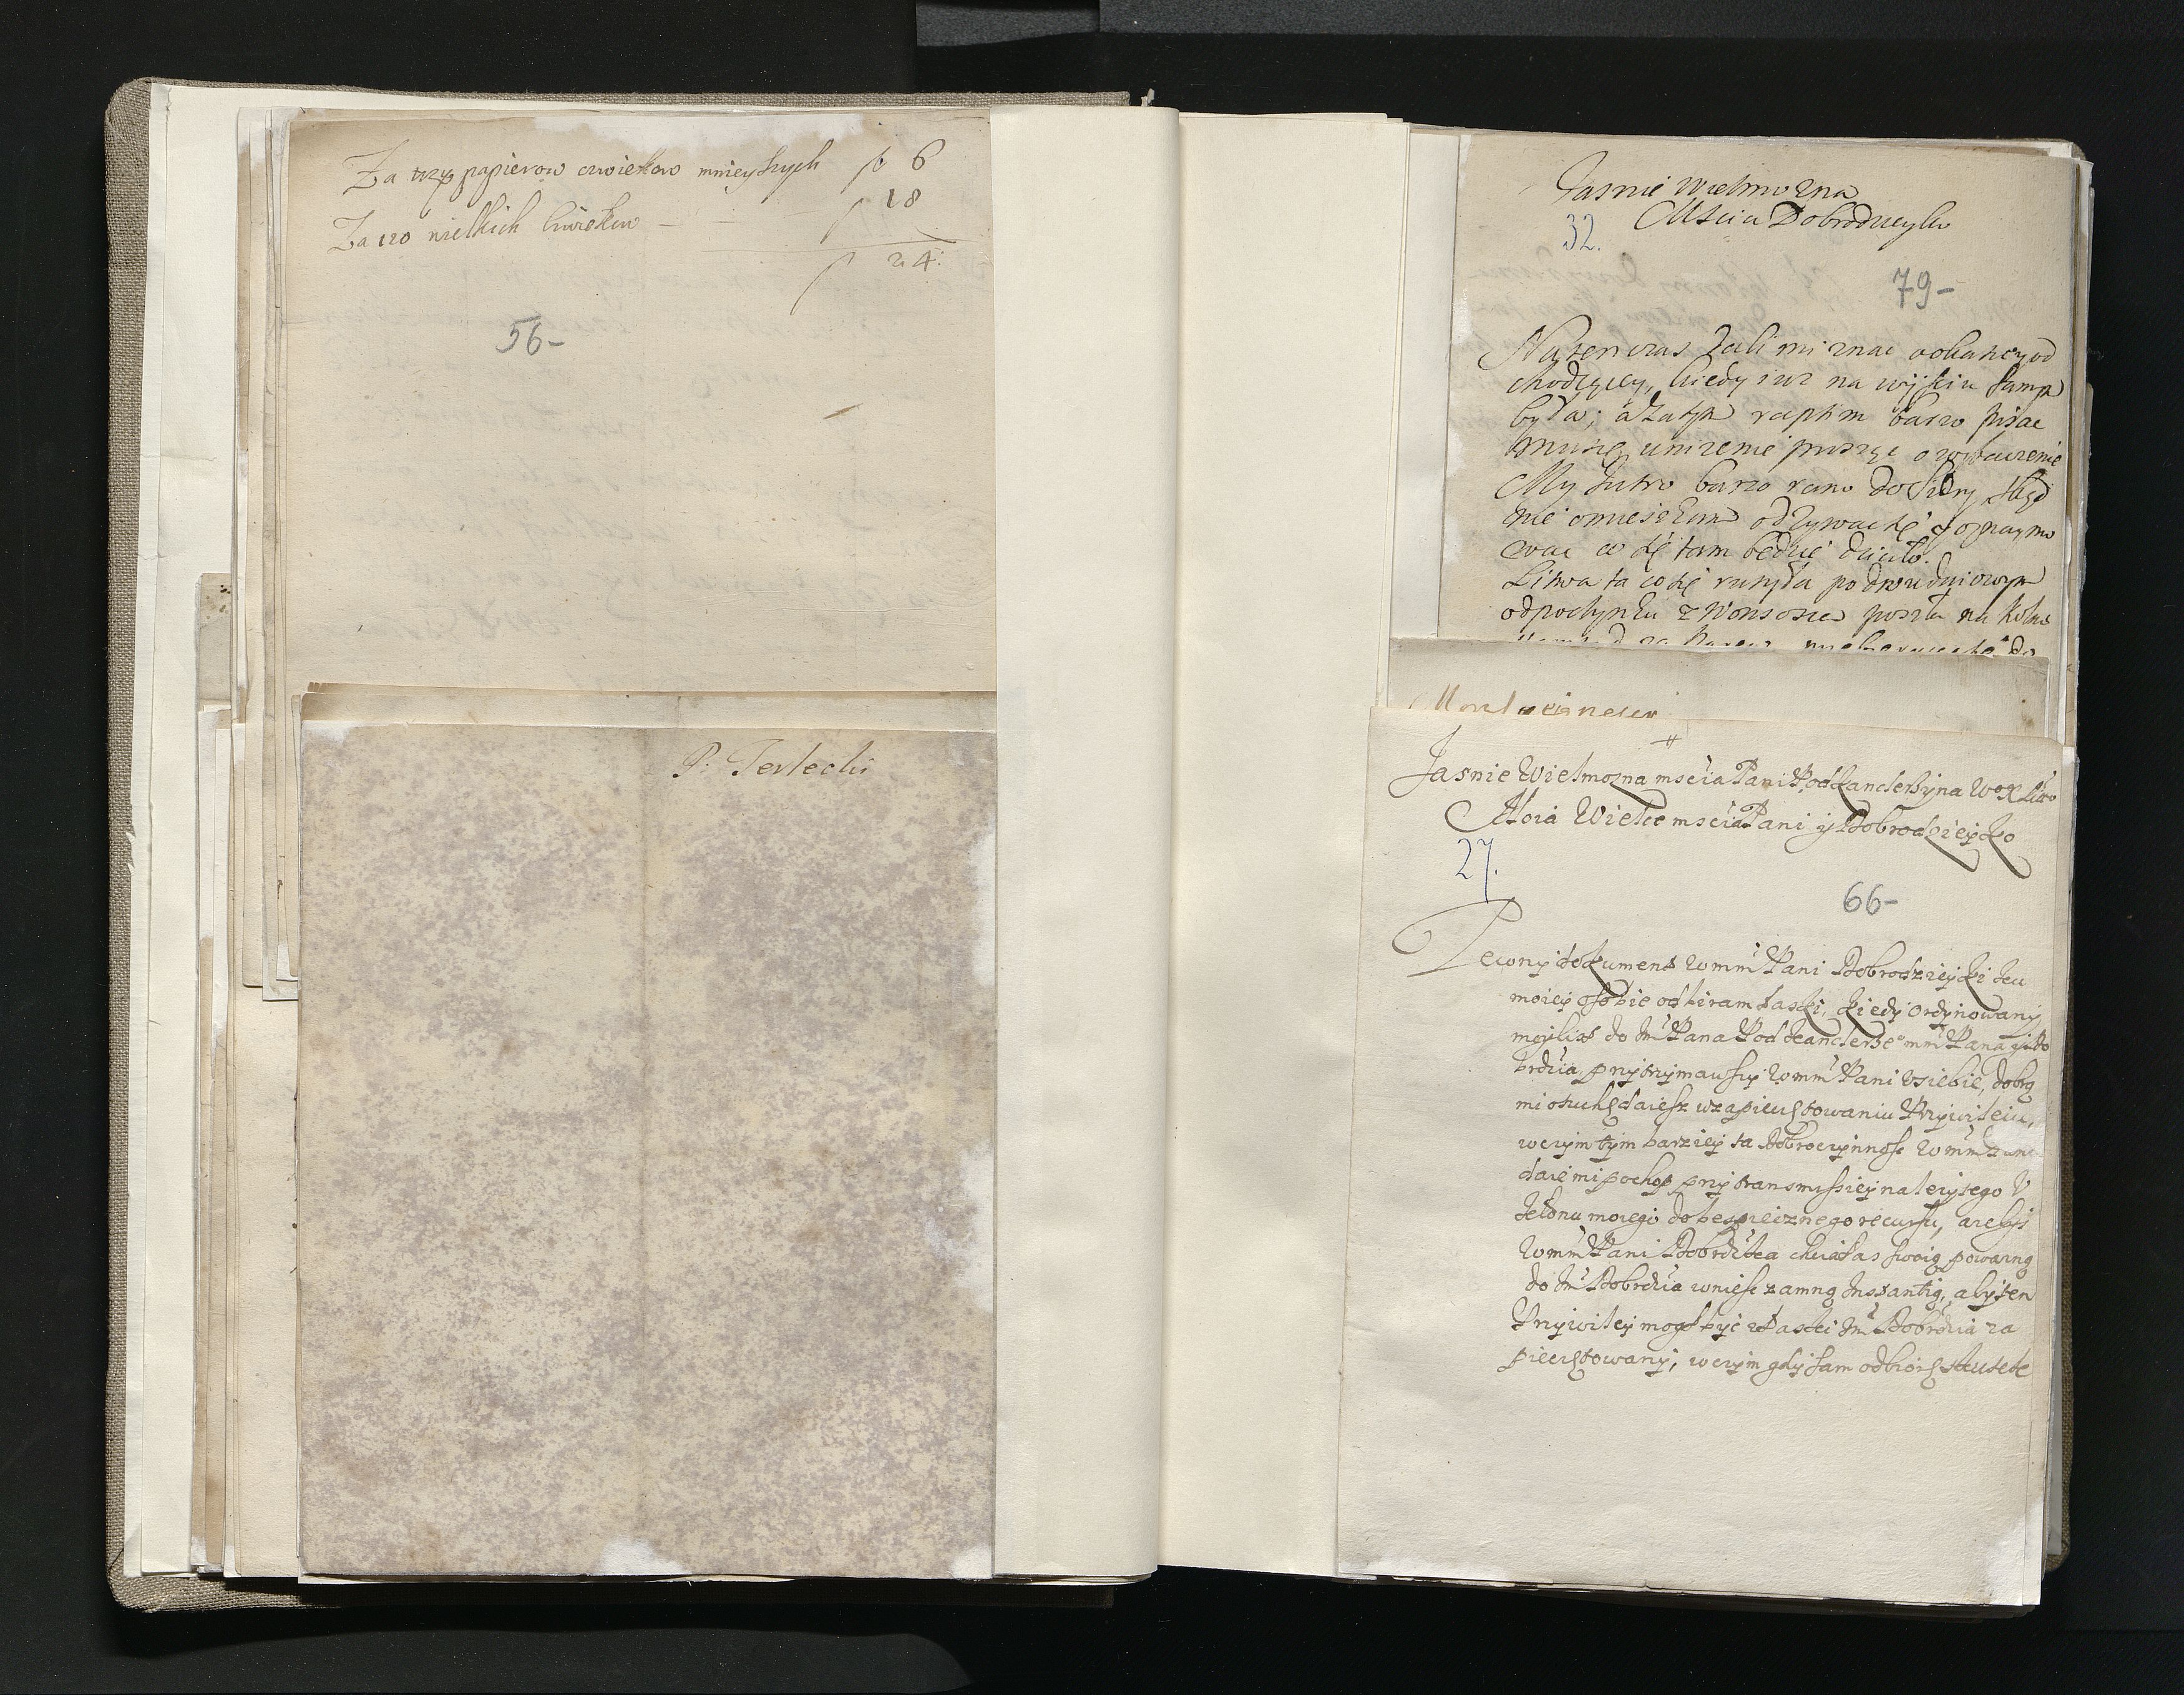 Za trzy papierow cwiekow mnieyszych f 6
Za 120 wielkich cwiekow — f 18
f 24:
56-
P: Terlecki
Jasnie Wielmozna
Mscia Dobrodzieyko
32.
79-
Na ten czas dali mi znac o okazcy od
chodzący, kiedy iuz na wyjsciu sama
była; a zatym raptim barzo pisac
muszę, unizenie proszę o wybaczenie
My jutro barzo rano do Lidy, skąd
nie omieszkam odzywac się y oznaymo
wac co się tam będzie działo.
Litwa ta co się ruszyła po dwudniowym
odpoczynku z Wonsosza poszła na Kolno
Jasnie Wielmozna mscia Pani Podkanclerzyna WoXLitto
Moia Wielce mscia Pani y Dobrodzieyko
27.
66-
Pewny dokument wmm Pani Dobrodzieyki ku
moiey osobie odbiram łaski, kiedy ordynowany
moy list do Jm Pana Podkanclerze mm Pana y Do
brdzia, przytrzymawszy wmm Pani u siebie, dobrą
mi otuchę daiesz w zapieczętowaniu Przywileiu,
w czym tym barziey ta Dobroczynnosc wmm Pani
daie mi pochop przy transmissiey na leżytego U
kłonu moiego do bespiecznego recursu, azebys
wmm Pani Dobrdzika chciała swoią powazną
do Jm Dobrdzia wniesc za mną Instantią, aby ten
Przywiley mogł byc z łaski Jm Dobrdzia za
pieczętowany, w czym gdy sam odbiorę skutek